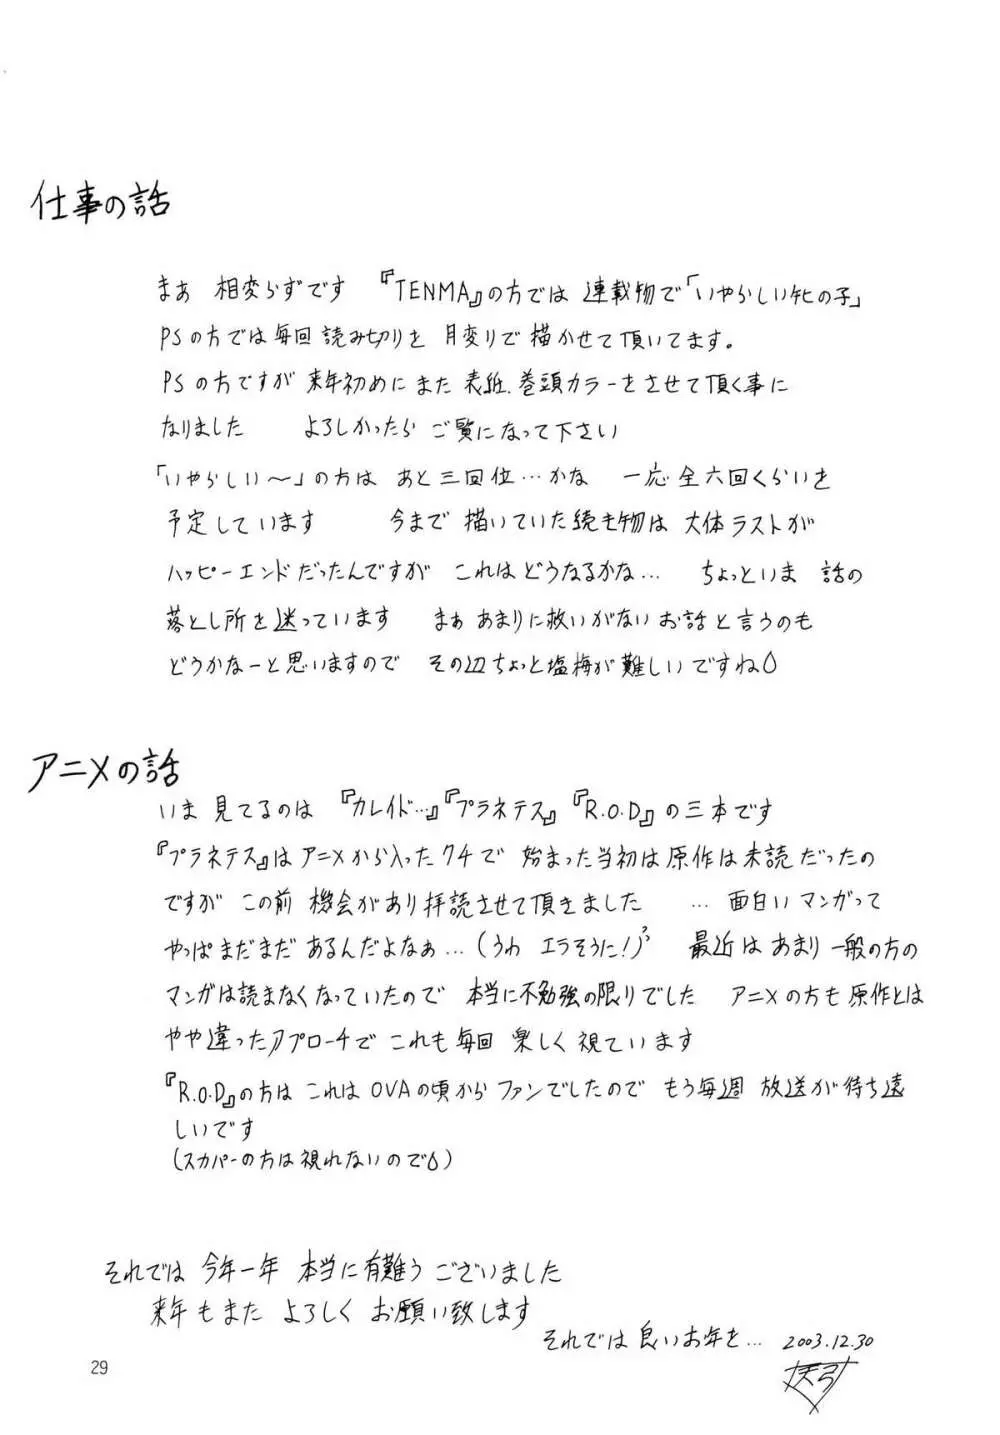 仕事の話
まぁ 相変らずです 『TENMA』の方では 連載物で「いやらしい牝の子」
PSの方では毎回読み切りを 月変りで描かせて頂いてます。
PSの方ですが来年初めにまた表紙.巻頭カラーをさせて頂く事に
なりました よろしかったら ご覧になって下さい
「いやらしい〜」の方は あと三回位…かな 一応全六回くらいを
予定しています 今まで描いていた続き物は 大体ラストが
ハッピーエンドだったんですが これはどうなるかな… ちょっといま 話の
落とし所を迷っています まぁあまりに救いがないお話と言うのも
どうかなーと思いますので その辺ちょっと塩梅が難しいですね
アニメの話
いま 見てるのは 『カレイド…』『プラネテス』『R.O.D』の三本です
『プラネテス』はアニメから入ったクチで 始まった当初は原作は未読だったの
ですが この前 機会があり拝読させて頂きました … 面白いマンガって
やっぱまだまだ あるんだよなぁ…(うわ エラそうに!) 最近は あまり一般の方の
マンガは読まなくなっていたので 本当に不勉強の限りでした アニメの方も原作とは
やや違ったアプローチで これも毎回 楽しく視ています
『R.O.D』の方は これはOVAの頃からファンでしたので もう毎週 放送が待ち遠
しいです
(スカパーの方は視れないので)
それでは 今年一年 本当に有難うございました
来年もまた よろしく お願い致します
それでは良いお年を… 2003.12.30
29